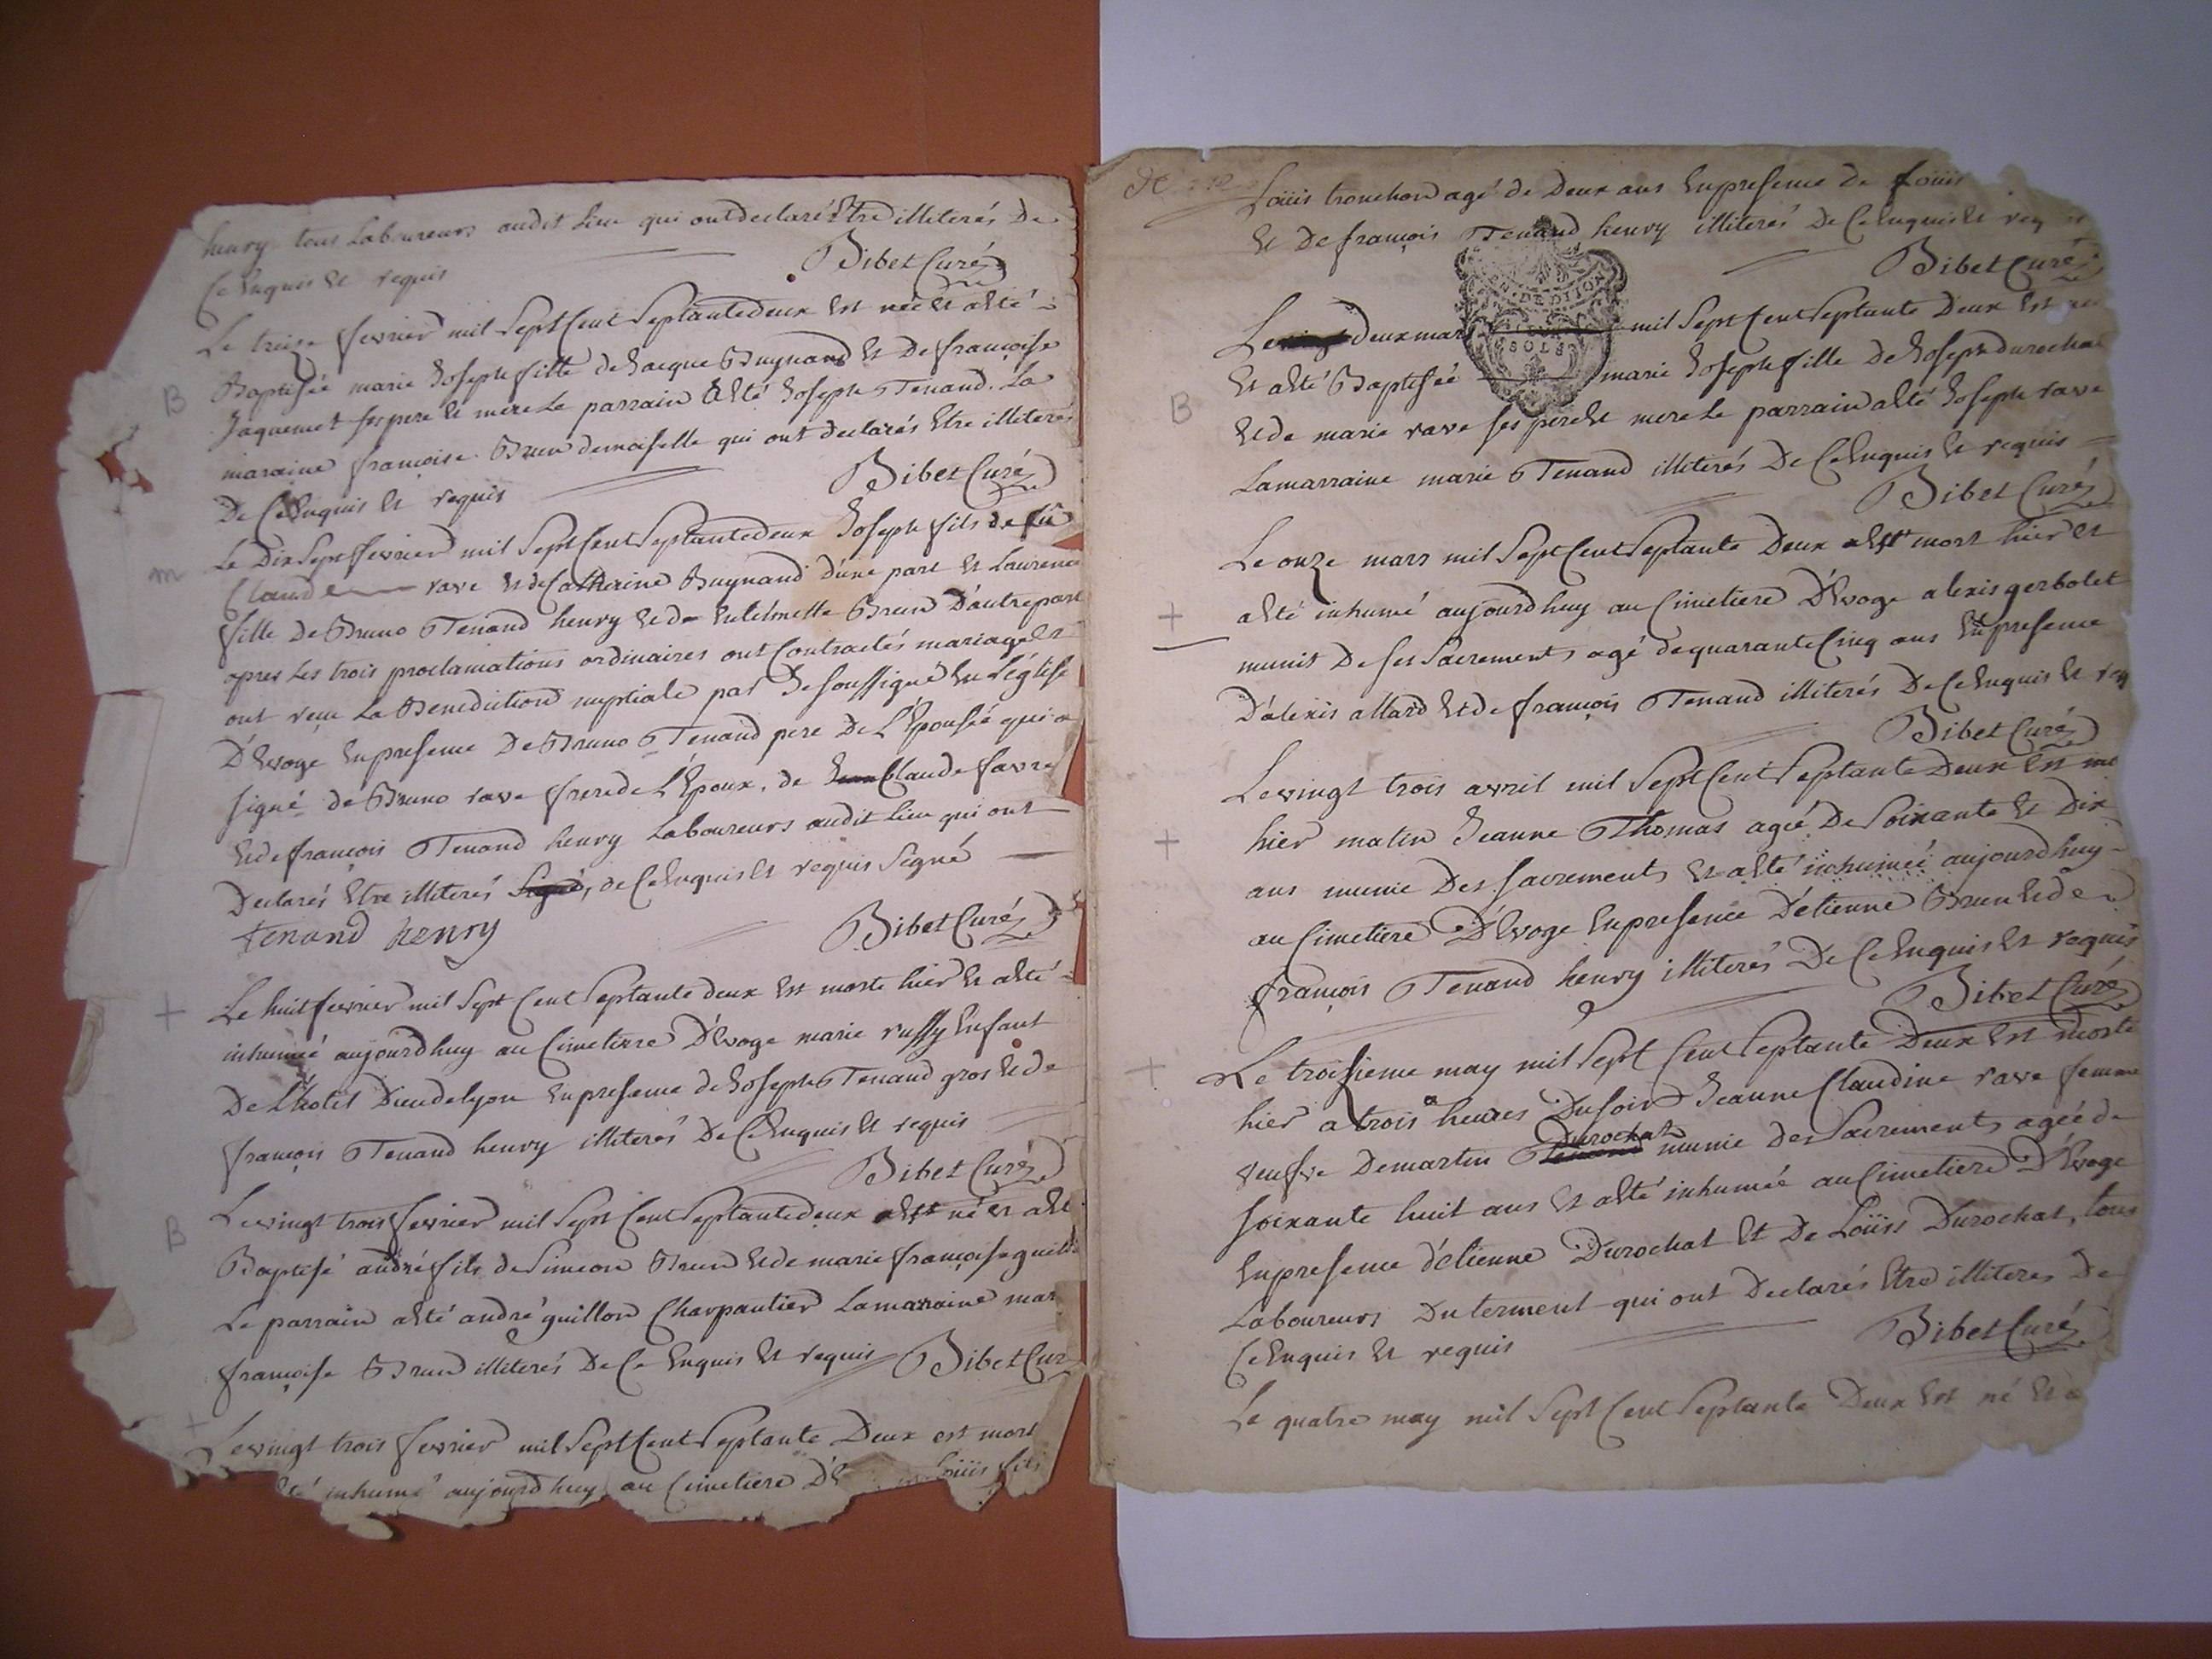 henry tous Laboureurs audit Lieu qui ont declarés Etre illiterés De
Ce Enquis Et requis Bibet Curé
Le treize fevrier mil Sept Cent Septante deux Est née Et a Eté
B Baptisée marie Joseph fille de Jacque Buynand Et De françoise
Jaquemet ses pere Et mere Le parrain a Eté Joseph Tenand. La
maraine françoise Brun demoiselle qui ont declarés Etre illiterés
De Ce Enquis Et requis Bibet Curé
m Le Dix Sept fevrier mil Sept Cent Septante deux Joseph fils de fû
Claude rave Et de Catherine Buynand D'une part Et Laurence
fille De Bruno Tenand henry Et de Brun D'autre part
apres Les trois proclamations ordinaires ont Contractés mariage Et
ont reçu La Benediction nuptiale par Je soussigné En L'église
D'Evoge En presence De Bruno Tenand pere De L'Epousée qui a
signé de Bruno rave frere de L'Epoux, de Claude favre
Et de françois Tenand henry Laboureurs audit Lieu qui ont
Declarés Etre illiterés de Ce Enquis Et requis Signé
tenand henry Bibet Curé
+ Le huit fevrier mil Sept Cent Septante deux Est morte hier Et a Eté
inhumée aujourd huy au Cimetiere D'Evoge marie russy Enfant
De L'hotel Dieu de lyon En presence de Joseph Tenand gros Et de
françois Tenand henry illiterés De Ce Enquis Et requis
Bibet Curé
B Le vingt trois fevrier mil Sept Cent Septante deux Est né Et a Eté
Baptisé andré fils de Simeon Brun Et de marie françoise
Le parrain a Eté andré guillon Charpantier La maraine mar
françoise Brun illiterés De Ce Enquis Et requis Bibet Cur
+ Le vingt trois fevrier mil Sept Cent Septante Deux est mort
Eté inhumé aujourd huy au Cimetiere D'E Loüis fils
Loüis tronchon agé de Deux ans En presence de Loüis
Et De françois Tenand henry illiterés De Ce Enquis Et req
Bibet Curé
Le deux mars mil Sept Cent Septante Deux Est née
B Et a Eté Baptisée marie Joseph fille De Joseph Durochat
Et de marie rave ses pere Et mere Le parrain a Eté Joseph rave
La marraine marie Tenand illiterés De Ce Enquis Et requis
Bibet Curé
Le onze mars mil Sept Cent Septante Deux Est mort hier Et
+ a Eté inhumé aujourd huy au Cimetiere D'Evoge alexis gerbolet
munit De ses Sacrements agé de quarante Cinq ans En presence
D'alexis allard Et de françois Tenand illiterés De Ce Enquis Et req
Bibet Curé
Le vingt trois avril mil Sept Cent Septante Deux Est mo
+ hier matin Jeanne Thomas agée De Soixante Et Dix
ans munie Des sacrements Et a Eté inhumée aujourd huy
au Cimetiere D'Evoge En presence D'étienne Brun Et de
françois Tenand henry illiterés De Ce Enquis Et requis
Bibet Curé
+ Le troisieme may mil Sept Cent Septante Deux Est morte
hier a trois heures Du soir Jeanne Claudine rave femme
veufve De martin Durochat munie des Sacrements agée de
soixante huit ans Et a Eté inhumée au Cimetiere D'Evoge
En presence d'étienne Durochat Et De Loüis Durochat, tous
Laboureurs Du terment qui ont Declarés Etre illiterés De
Ce Enquis Et requis Bibet Curé
Le quatre may mil Sept Cent Septante Deux Est né Et a
DE DIJON
SOLS